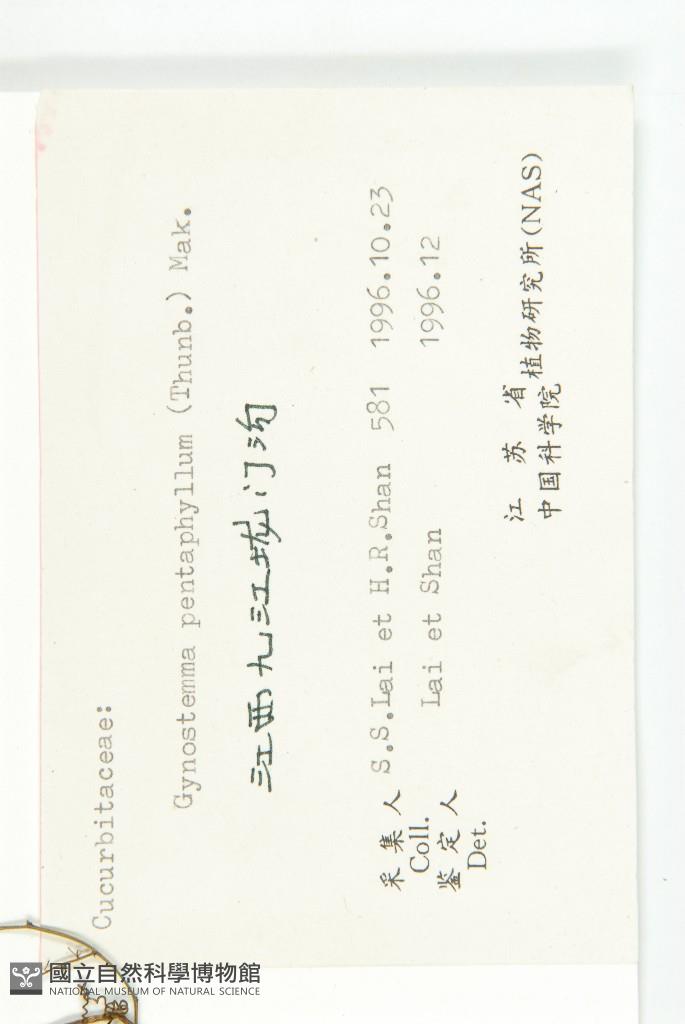 Cucurbitaceae:
Gynostemma pentaphyllum (Thunb.) Mak.
江西九江垅门沟
采集人 S.S.Lai et H.R.Shan 581 1996.10.23
Coll.
鉴定人 Lai et Shan 1996.12
Det.
江苏省
中国科学院
植物研究所(NAS)
國立自然科學博物館
NATIONAL MUSEUM OF NATURAL SCIENCE